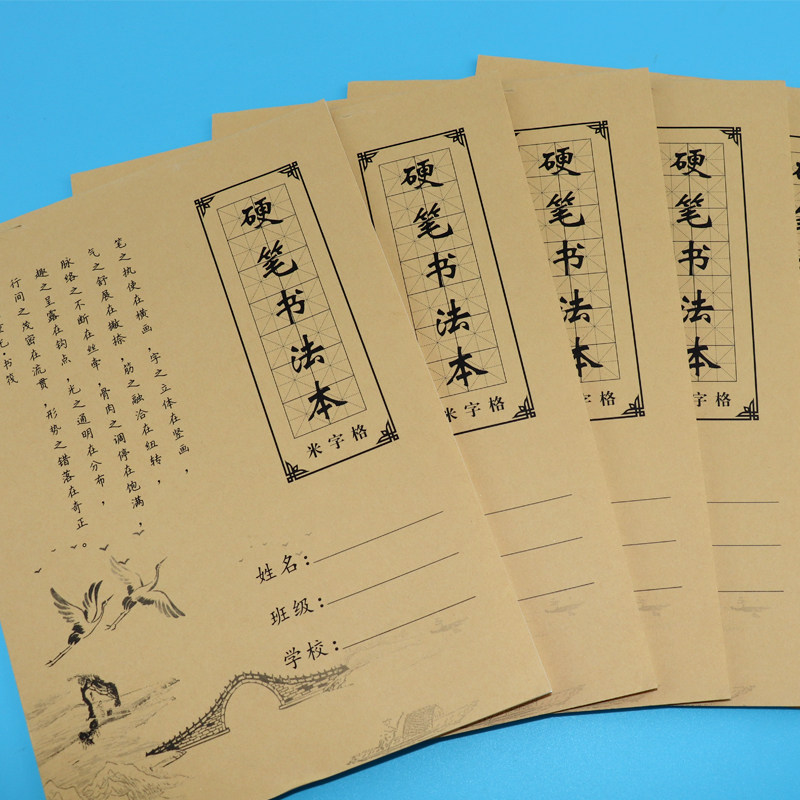 硬笔书法本
米字格
笔之执使在横画，字之立体在竖画，
气之舒展在撇捺，筋之融洽在纽转，
脉络之不断在丝牵，骨肉之调停在饱满，
趣之呈露在钩点，光之通明在分布，
行间之茂密在流贯，形势之错落在奇正。
光，书筏
姓名：
班级：
学校：
硬笔书法本
米字格
硬笔书法本
字格
硬笔书法本
字格